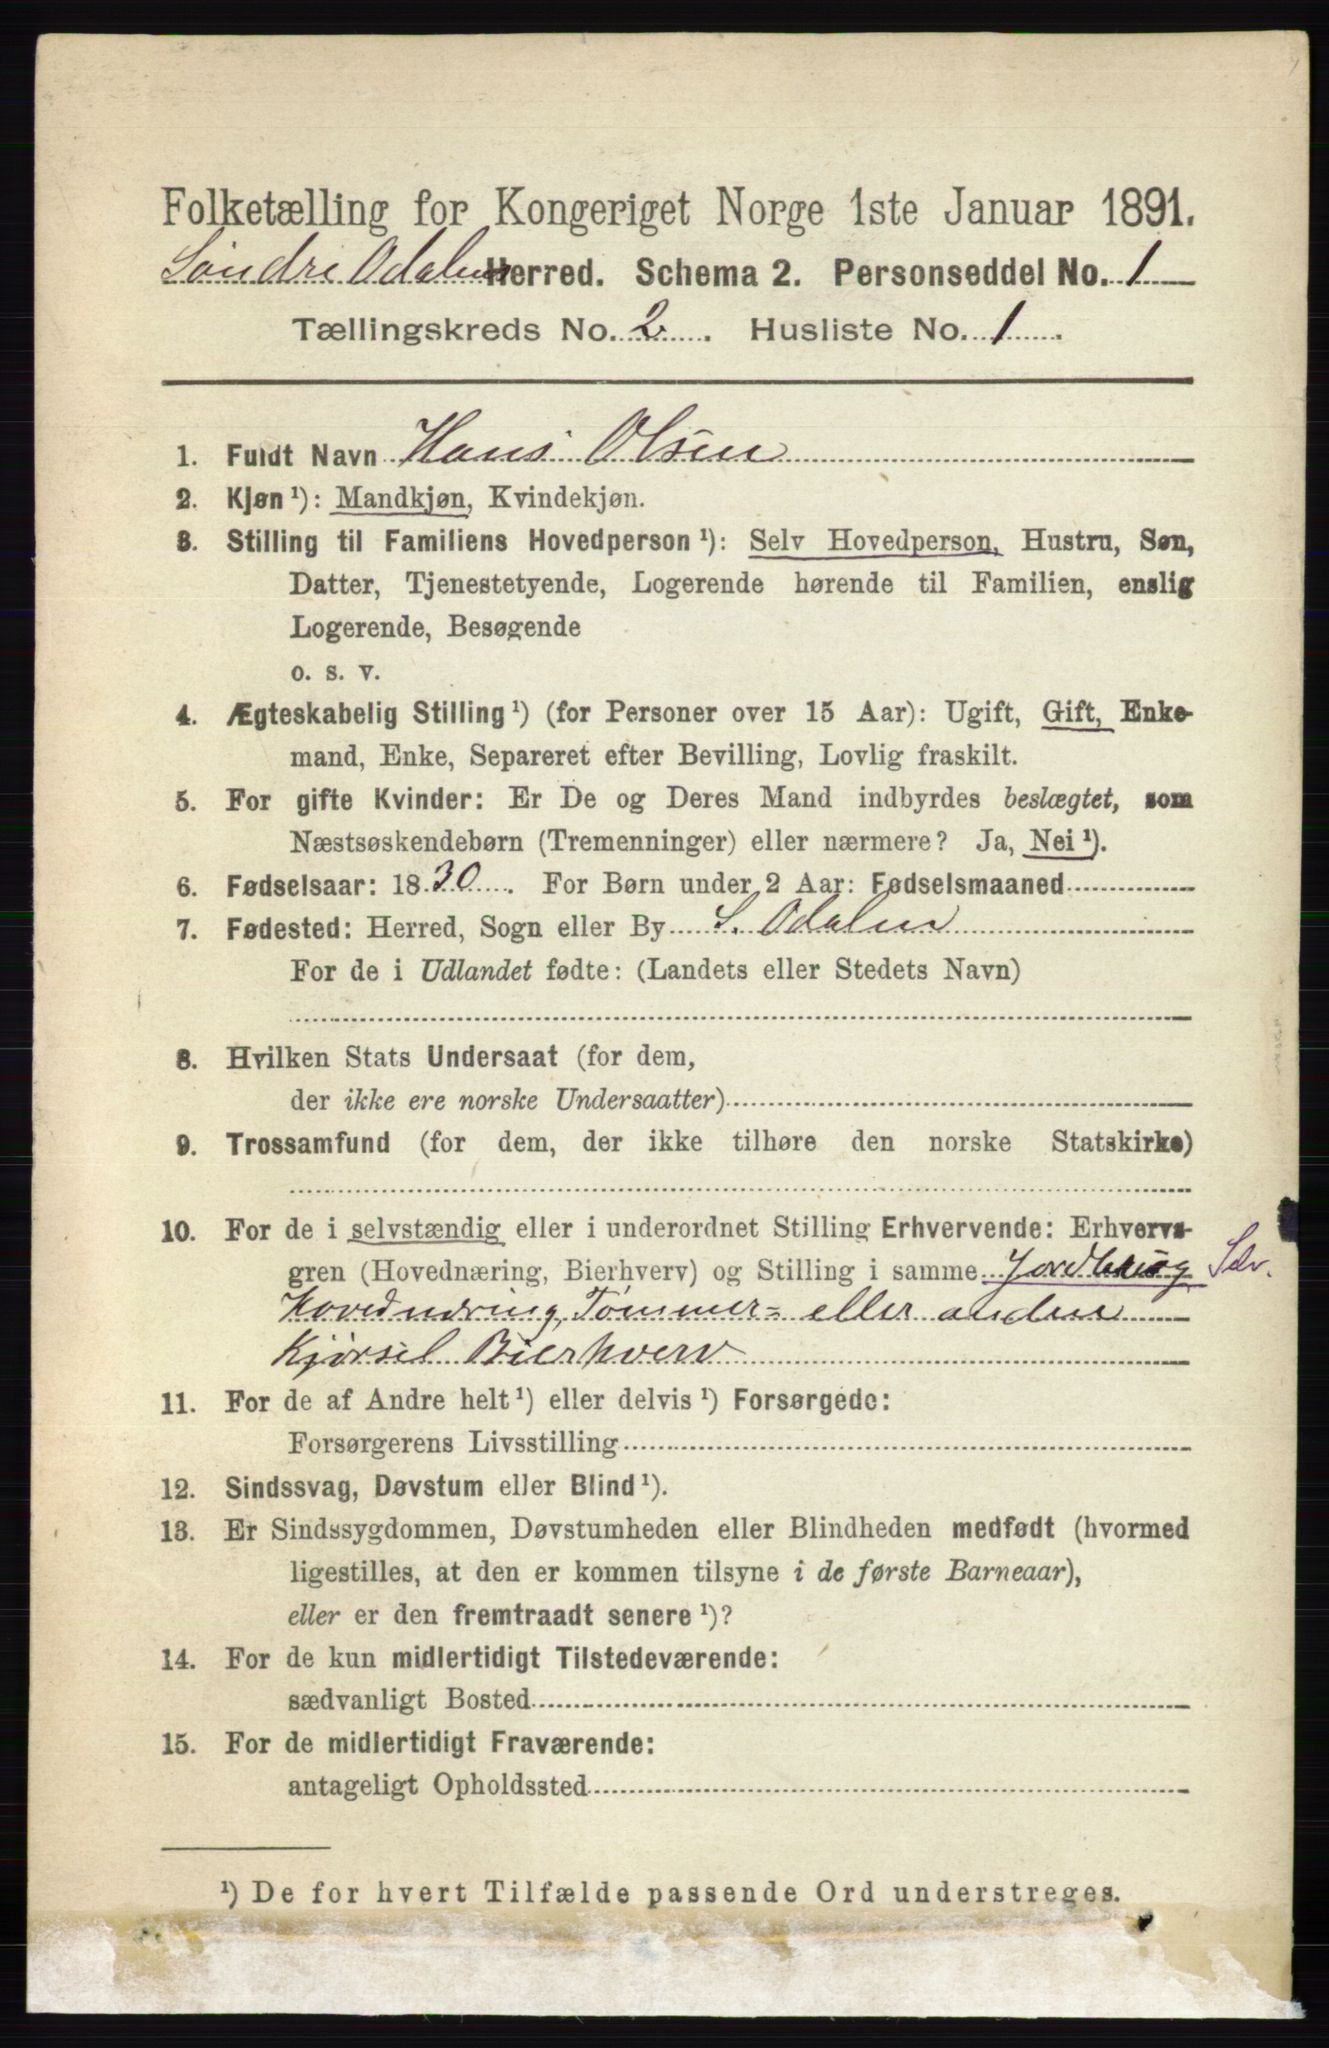 Folketælling for Kongeriget Norge 1ste Januar 1891.
Söndre Odalen Herred. Schema 2. Personseddel No. 1
Tællingskreds No. 2. Husliste No. 1.
1. Fuldt Navn Hans Olsen
2. Kjøn¹): Mandkjøn, Kvindekjøn.
3. Stilling til Familiens Hovedperson¹): Selv Hovedperson, Hustru, Søn,
Datter, Tjenestetyende, Logerende hørende til Familien, enslig
Logerende, Besøgende
o. s. v.
4. Ægteskabelig Stilling¹) (for Personer over 15 Aar): Ugift, Gift, Enke-
mand, Enke, Separeret efter Bevilling, Lovlig fraskilt.
5. For gifte Kvinder: Er De og Deres Mand indbyrdes beslægtet, som
Næstsøskendebørn (Tremenninger) eller nærmere? Ja, Nei¹).
6. Fødselsaar: 1830. For Børn under 2 Aar: Fødselsmaaned
7. Fødested: Herred, Sogn eller By S. Odalen
For de i Udlandet fødte: (Landets eller Stedets Navn)
8. Hvilken Stats Undersaat (for dem,
der ikke ere norske Undersaatter)
9. Trossamfund (for dem, der ikke tilhøre den norske Statskirke)
10. For de i selvstændig eller i underordnet Stilling Erhvervende: Erhvervs-
gren (Hovednæring, Bierhverv) og Stilling i samme Jordbrug Selv.
Hovednæring, Tømmer= eller anden
Kjørsel Bierhverv
11. For de af Andre helt¹) eller delvis¹) Forsørgede:
Forsørgerens Livsstilling
12. Sindssvag, Døvstum eller Blind¹).
13. Er Sindssygdommen, Døvstumheden eller Blindheden medfødt (hvormed
ligestilles, at den er kommen tilsyne i de første Barneaar),
eller er den fremtraadt senere¹)?
14. For de kun midlertidigt Tilstedeværende:
sædvanligt Bosted
15. For de midlertidigt Fraværende:
antageligt Opholdssted
¹) De for hvert Tilfælde passende Ord understreges.